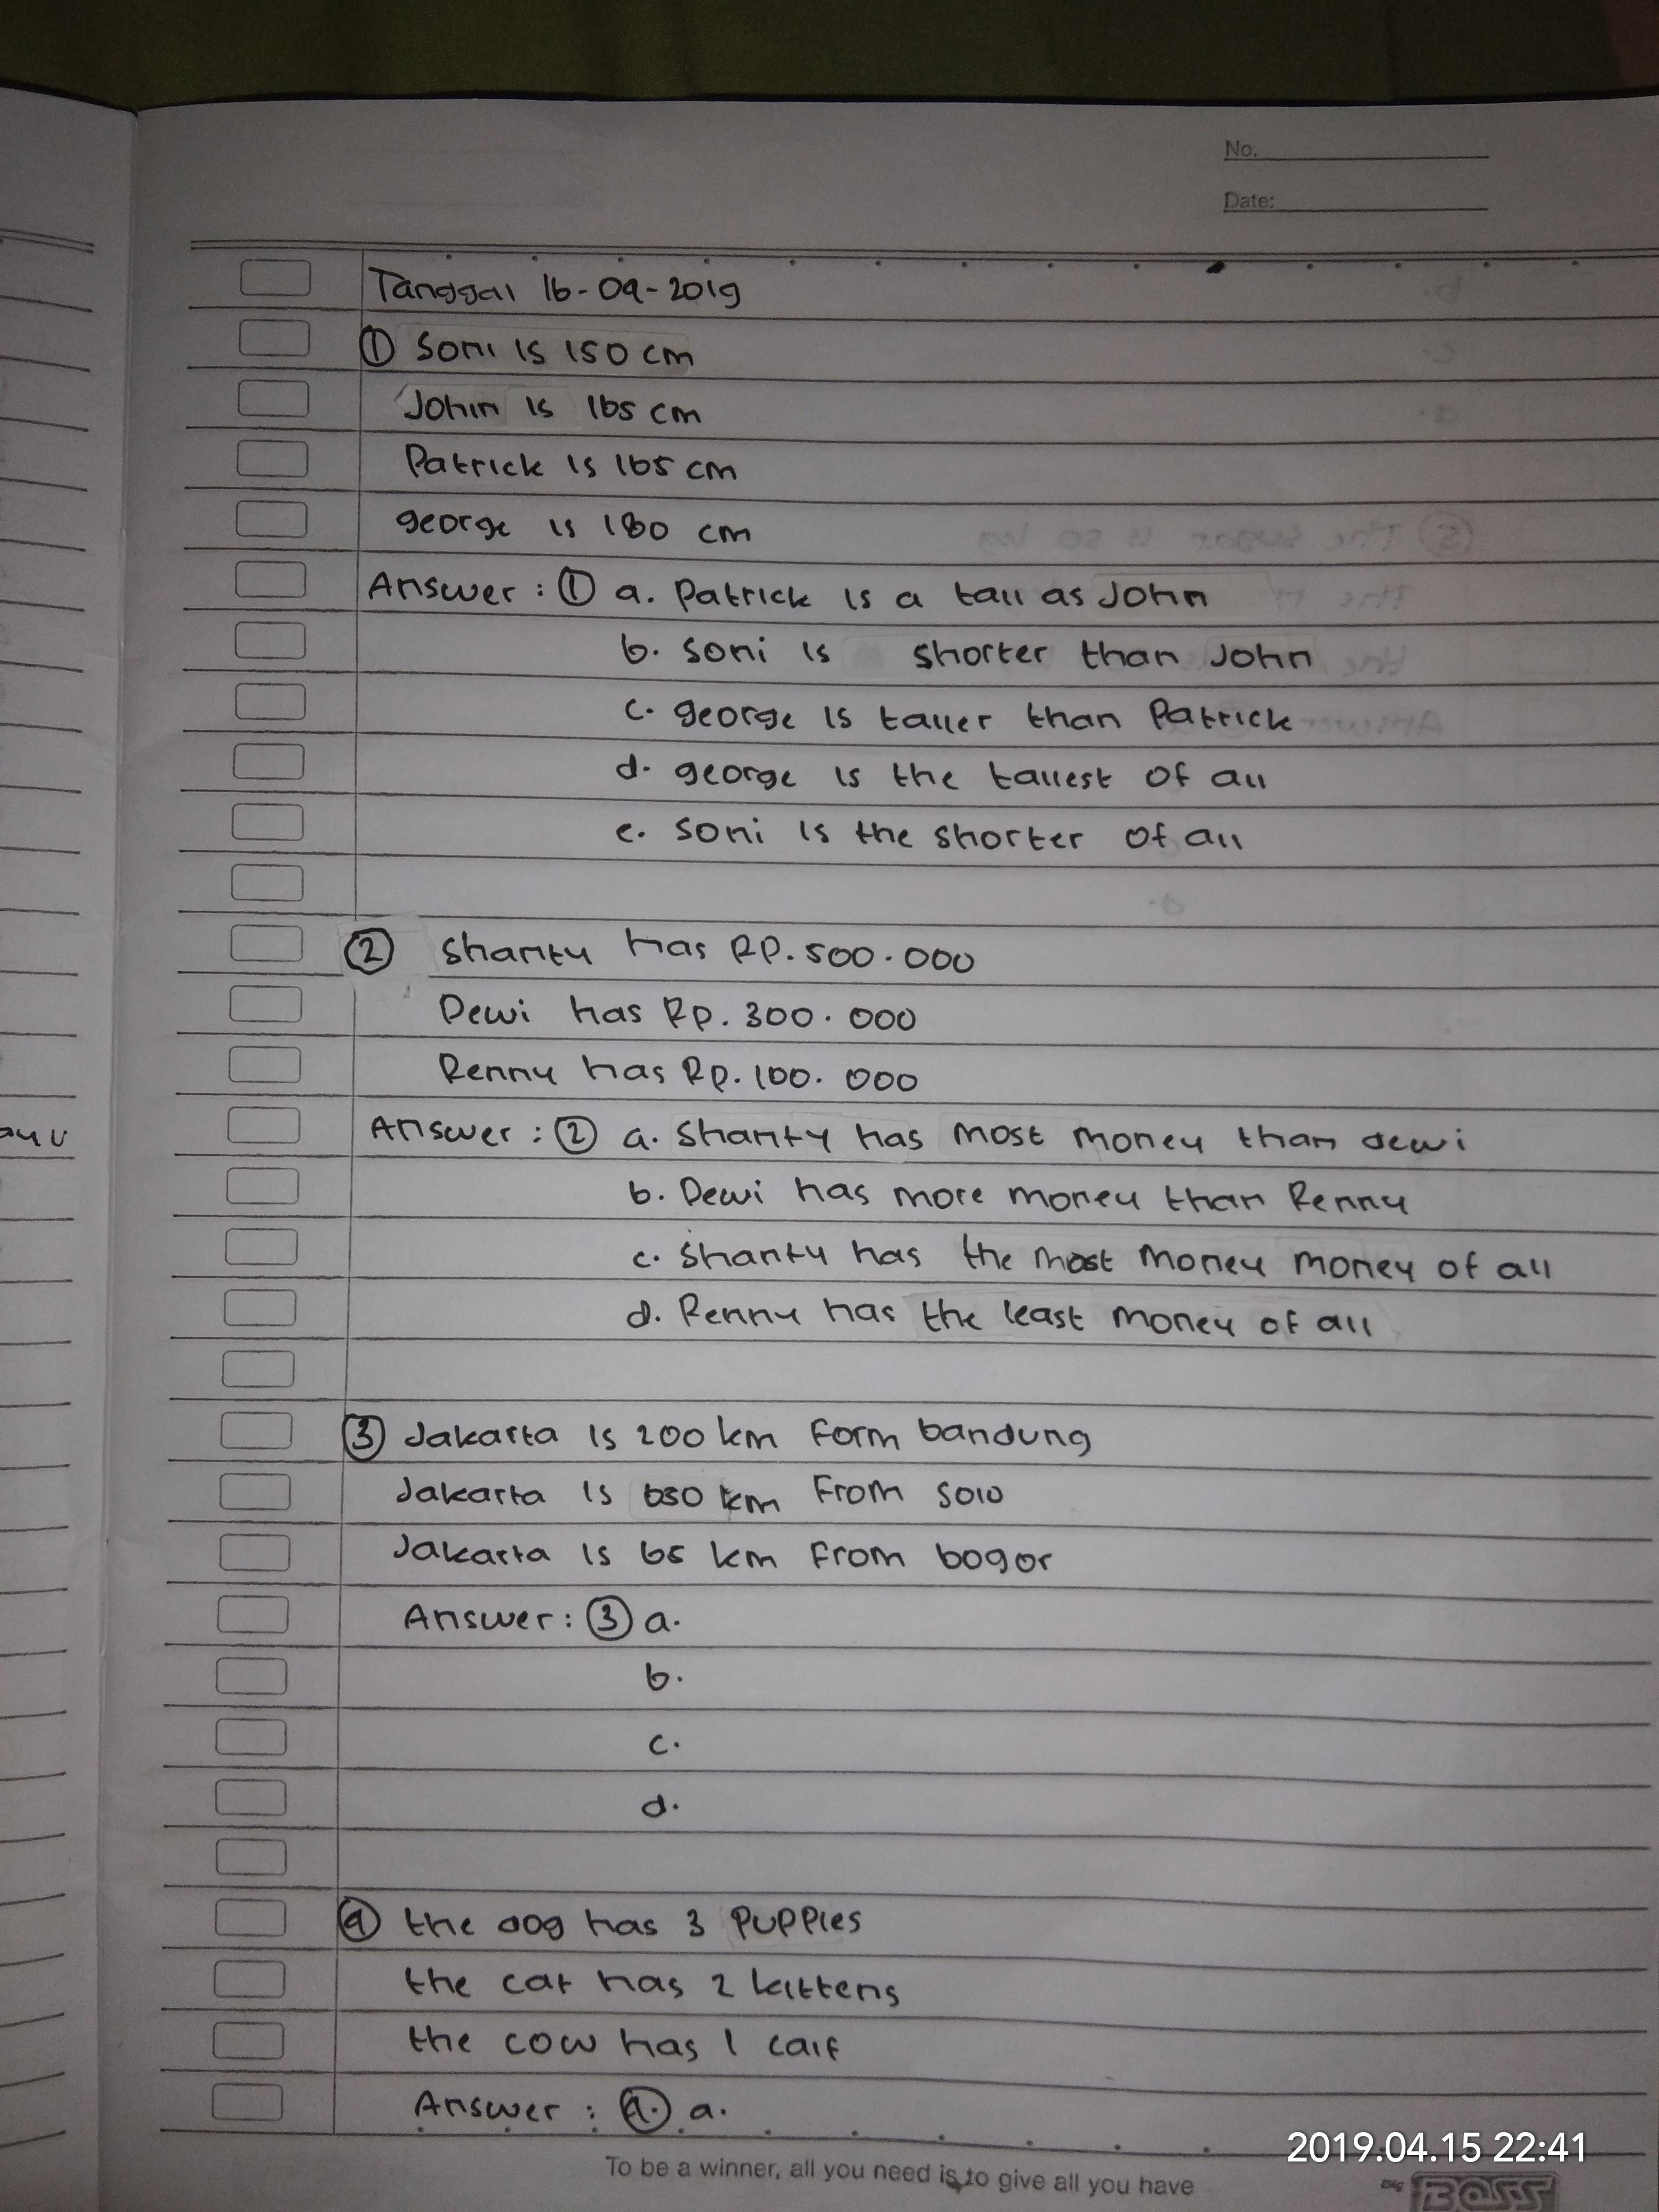 No.
Date:
Tanggal 16-04-2019
① Soni is 150 cm
John is 165 cm
Patrick is 165 cm
george is 180 cm
Answer : ① a. Patrick is a tall as John
b. Soni is shorter than John
c. george is taller than Patrick
d. george is the tallest of all
e. Soni is the shorter of all
② Shanty has RP. 500.000
Dewi has Rp. 300.000
Renny has Rp. 100.000
Answer : ② a. Shanty has most money than dewi
b. Dewi has more money than Renny
c. Shanty has the most money money of all
d. Renny has the least money of all
③ Jakarta is 200 km form bandung
Jakarta is 650 km from solo
Jakarta is 65 km from bogor
Answer : ③ a.
b.
c.
d.
④ the dog has 3 puppies
the cat has 2 kittens
the cow has 1 calf
Answer : ④. a.
2019.04.15 22:41
To be a winner, all you need is to give all you have
BOSS